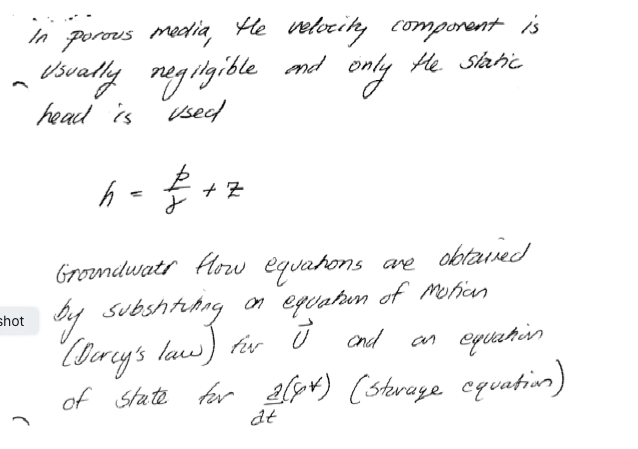 In porous media, the velocity component is
usually negilgible and only the static
head is used
h = p/γ + z
Groundwatr flow equations are obtained
shot
by substituting an equation of Motion
(Darcy's law) for U⃗ and an equation
of state for ∂(ρ∀)/∂t (storage equation)